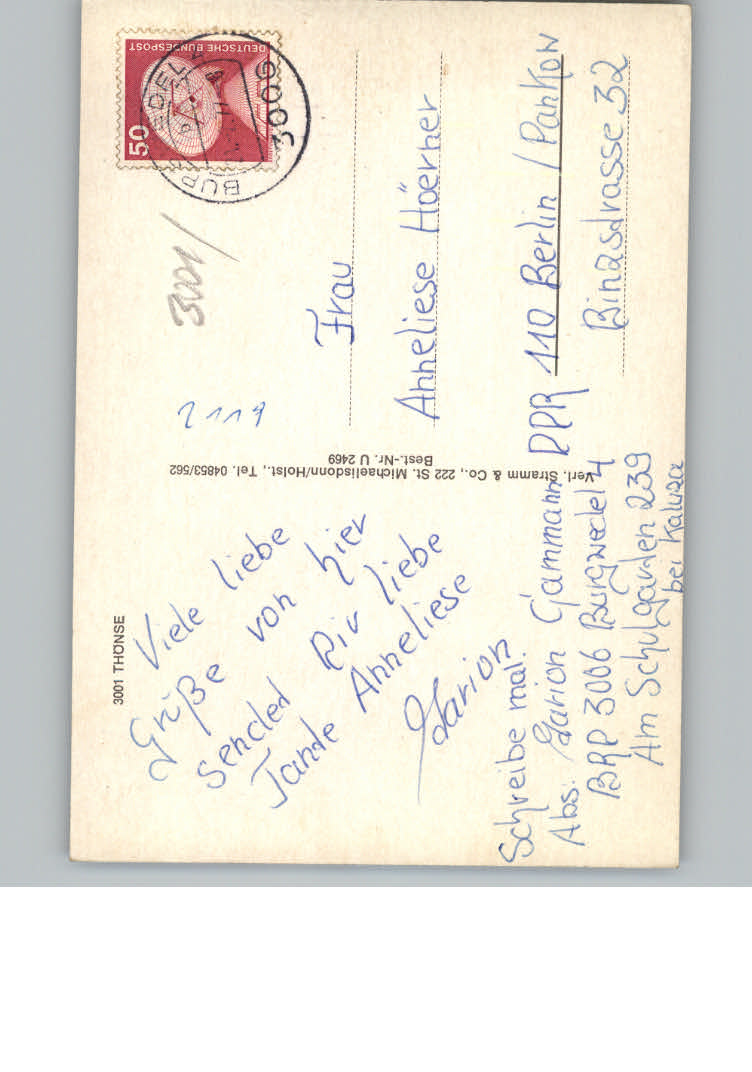 3001 THÖNSE
Viele liebe
Grüße von hier
sended Dir liebe
Tande Anneliese
Marion
Schreibe mal.
Abs: Marion Gammann
BRD 3006 Burgwedel 4
Am Schulgarden 239
bei Kaluza
Verl. Stramm & Co., 222 St. Michaelisdonn/Holst., Tel. 04853/562
Best.-Nr. U 2469
DEUTSCHE BUNDESPOST
50
3006
3001/
2119
Frau
Anneliese Höerner
DDR 110 Berlin / Pankow
Binasdrasse 32